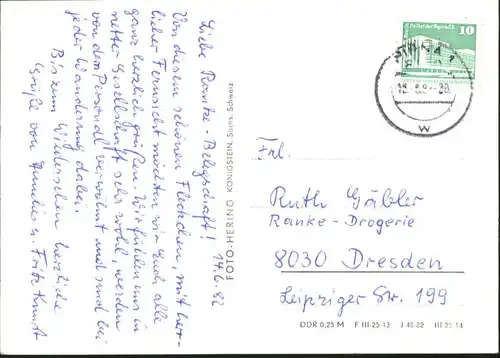 Liebe Ranke-Belegschaft! 14.6.82
Von diesem schönen Fleckchen, mit herr-
licher Fernsicht möchten wir Euch alle
ganz herzlich grüßen. Wir fühlen uns in
netter Gesellschaft sehr wohl, werden
von dem Personal verwöhnt und sind bei
jeder Wanderung dabei.
Bis zum Wiedersehen herzliche
Grüße von u. Fritz
FOTO-HERING KÖNIGSTEIN, Sächs. Schweiz
10
PIRNA 1
W
Frl.
Ruth Gäbler
Ranke-Drogerie
8030 Dresden
Leipziger Str. 199
DDR 0,25 M F III-25-13 J 45-82 III 25 14